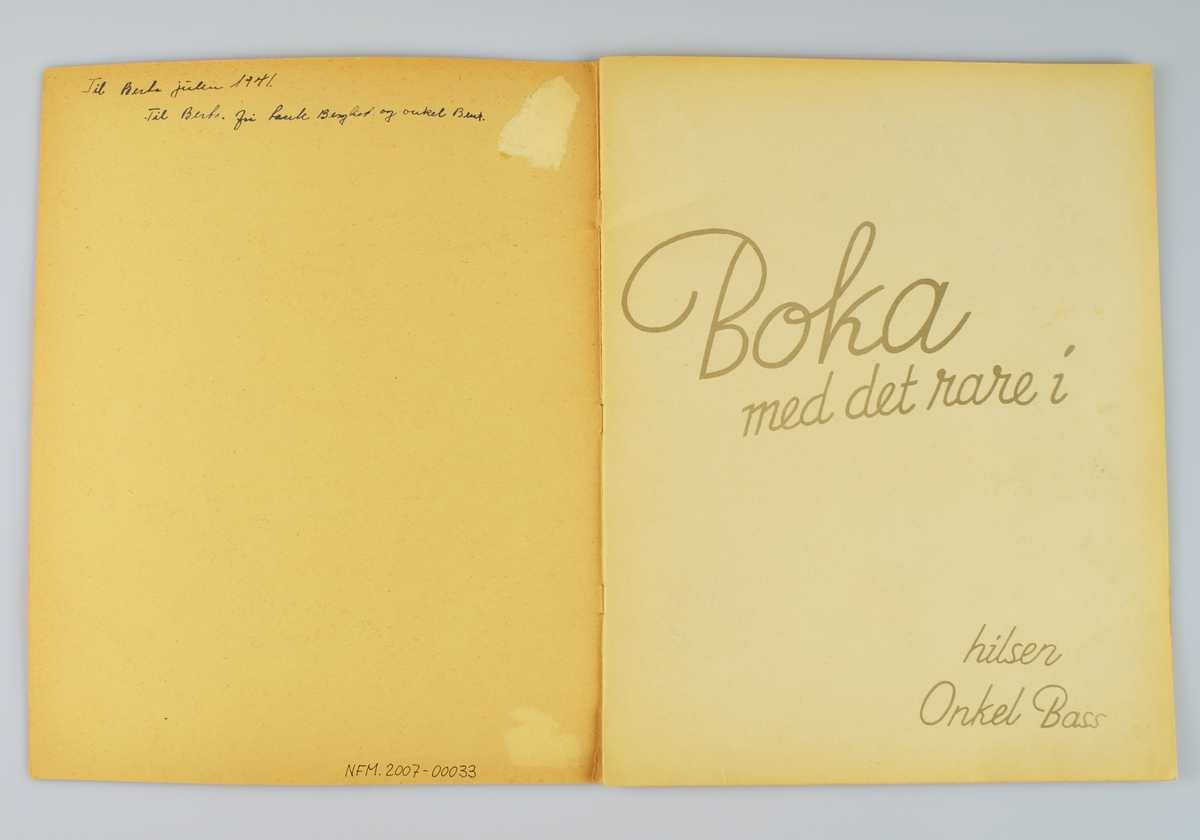 Til Berta julen 1941.
Til Berta. fra tante og onkel Bent.
NFM.2007-00033
Boka
med det rare i
hilsen
Onkel Bass